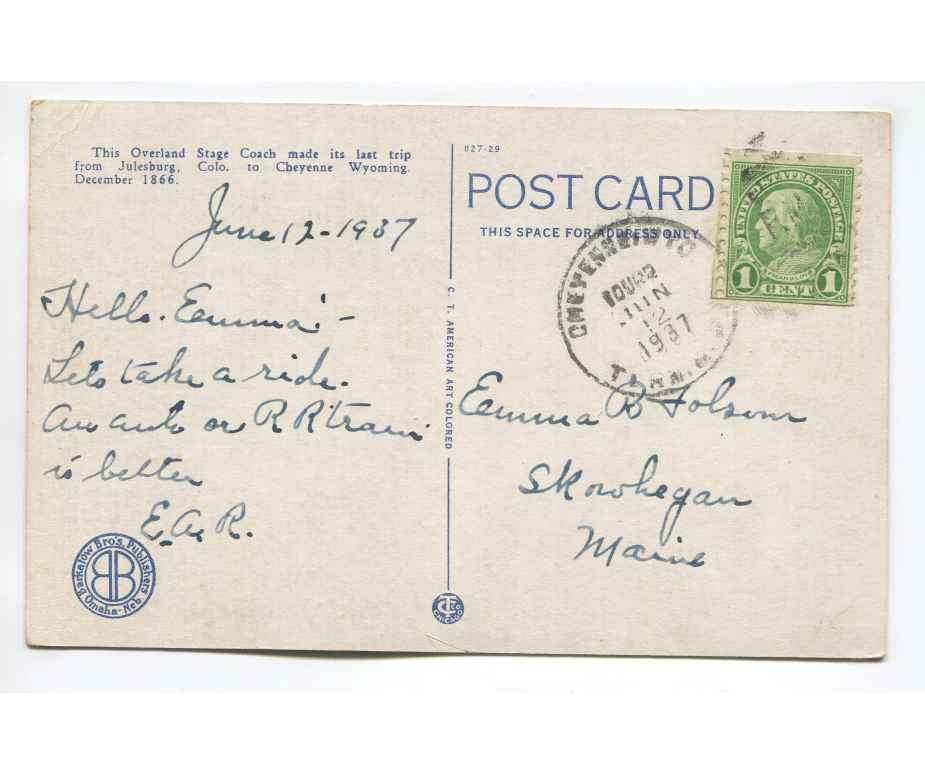 This Overland Stage Coach made its last trip
from Julesburg, Colo. to Cheyenne Wyoming.
December 1866.
June 12 - 1937
Hello. Emma: -
Lets take a ride.
An auto or R R train
is better
E. A. R.
Barkalow Bro's. Publishers
BB
Omaha-Neb.
C. T. AMERICAN ART COLORED
CHICAGO
827-29
POST CARD
THIS SPACE FOR ADDRESS ONLY
JUN
12
1937
UNITED STATES POSTAGE
FRANKLIN
1 CENT 1
Emma B Folsom
Skowhegan
Maine